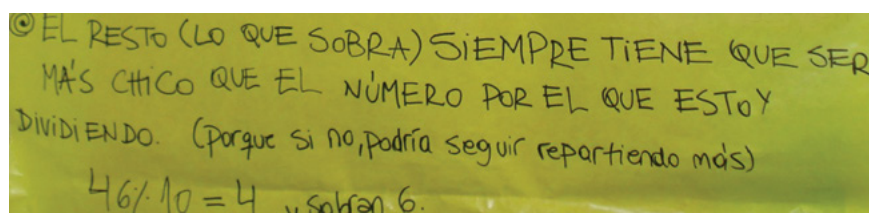 ◎ EL RESTO (LO QUE SOBRA) SIEMPRE TIENE QUE SER
MÁS CHICO QUE EL NÚMERO POR EL QUE ESTOY
DIVIDIENDO. (porque si no, podría seguir repartiendo más)
46 ÷ 10 = 4 y sobran 6.